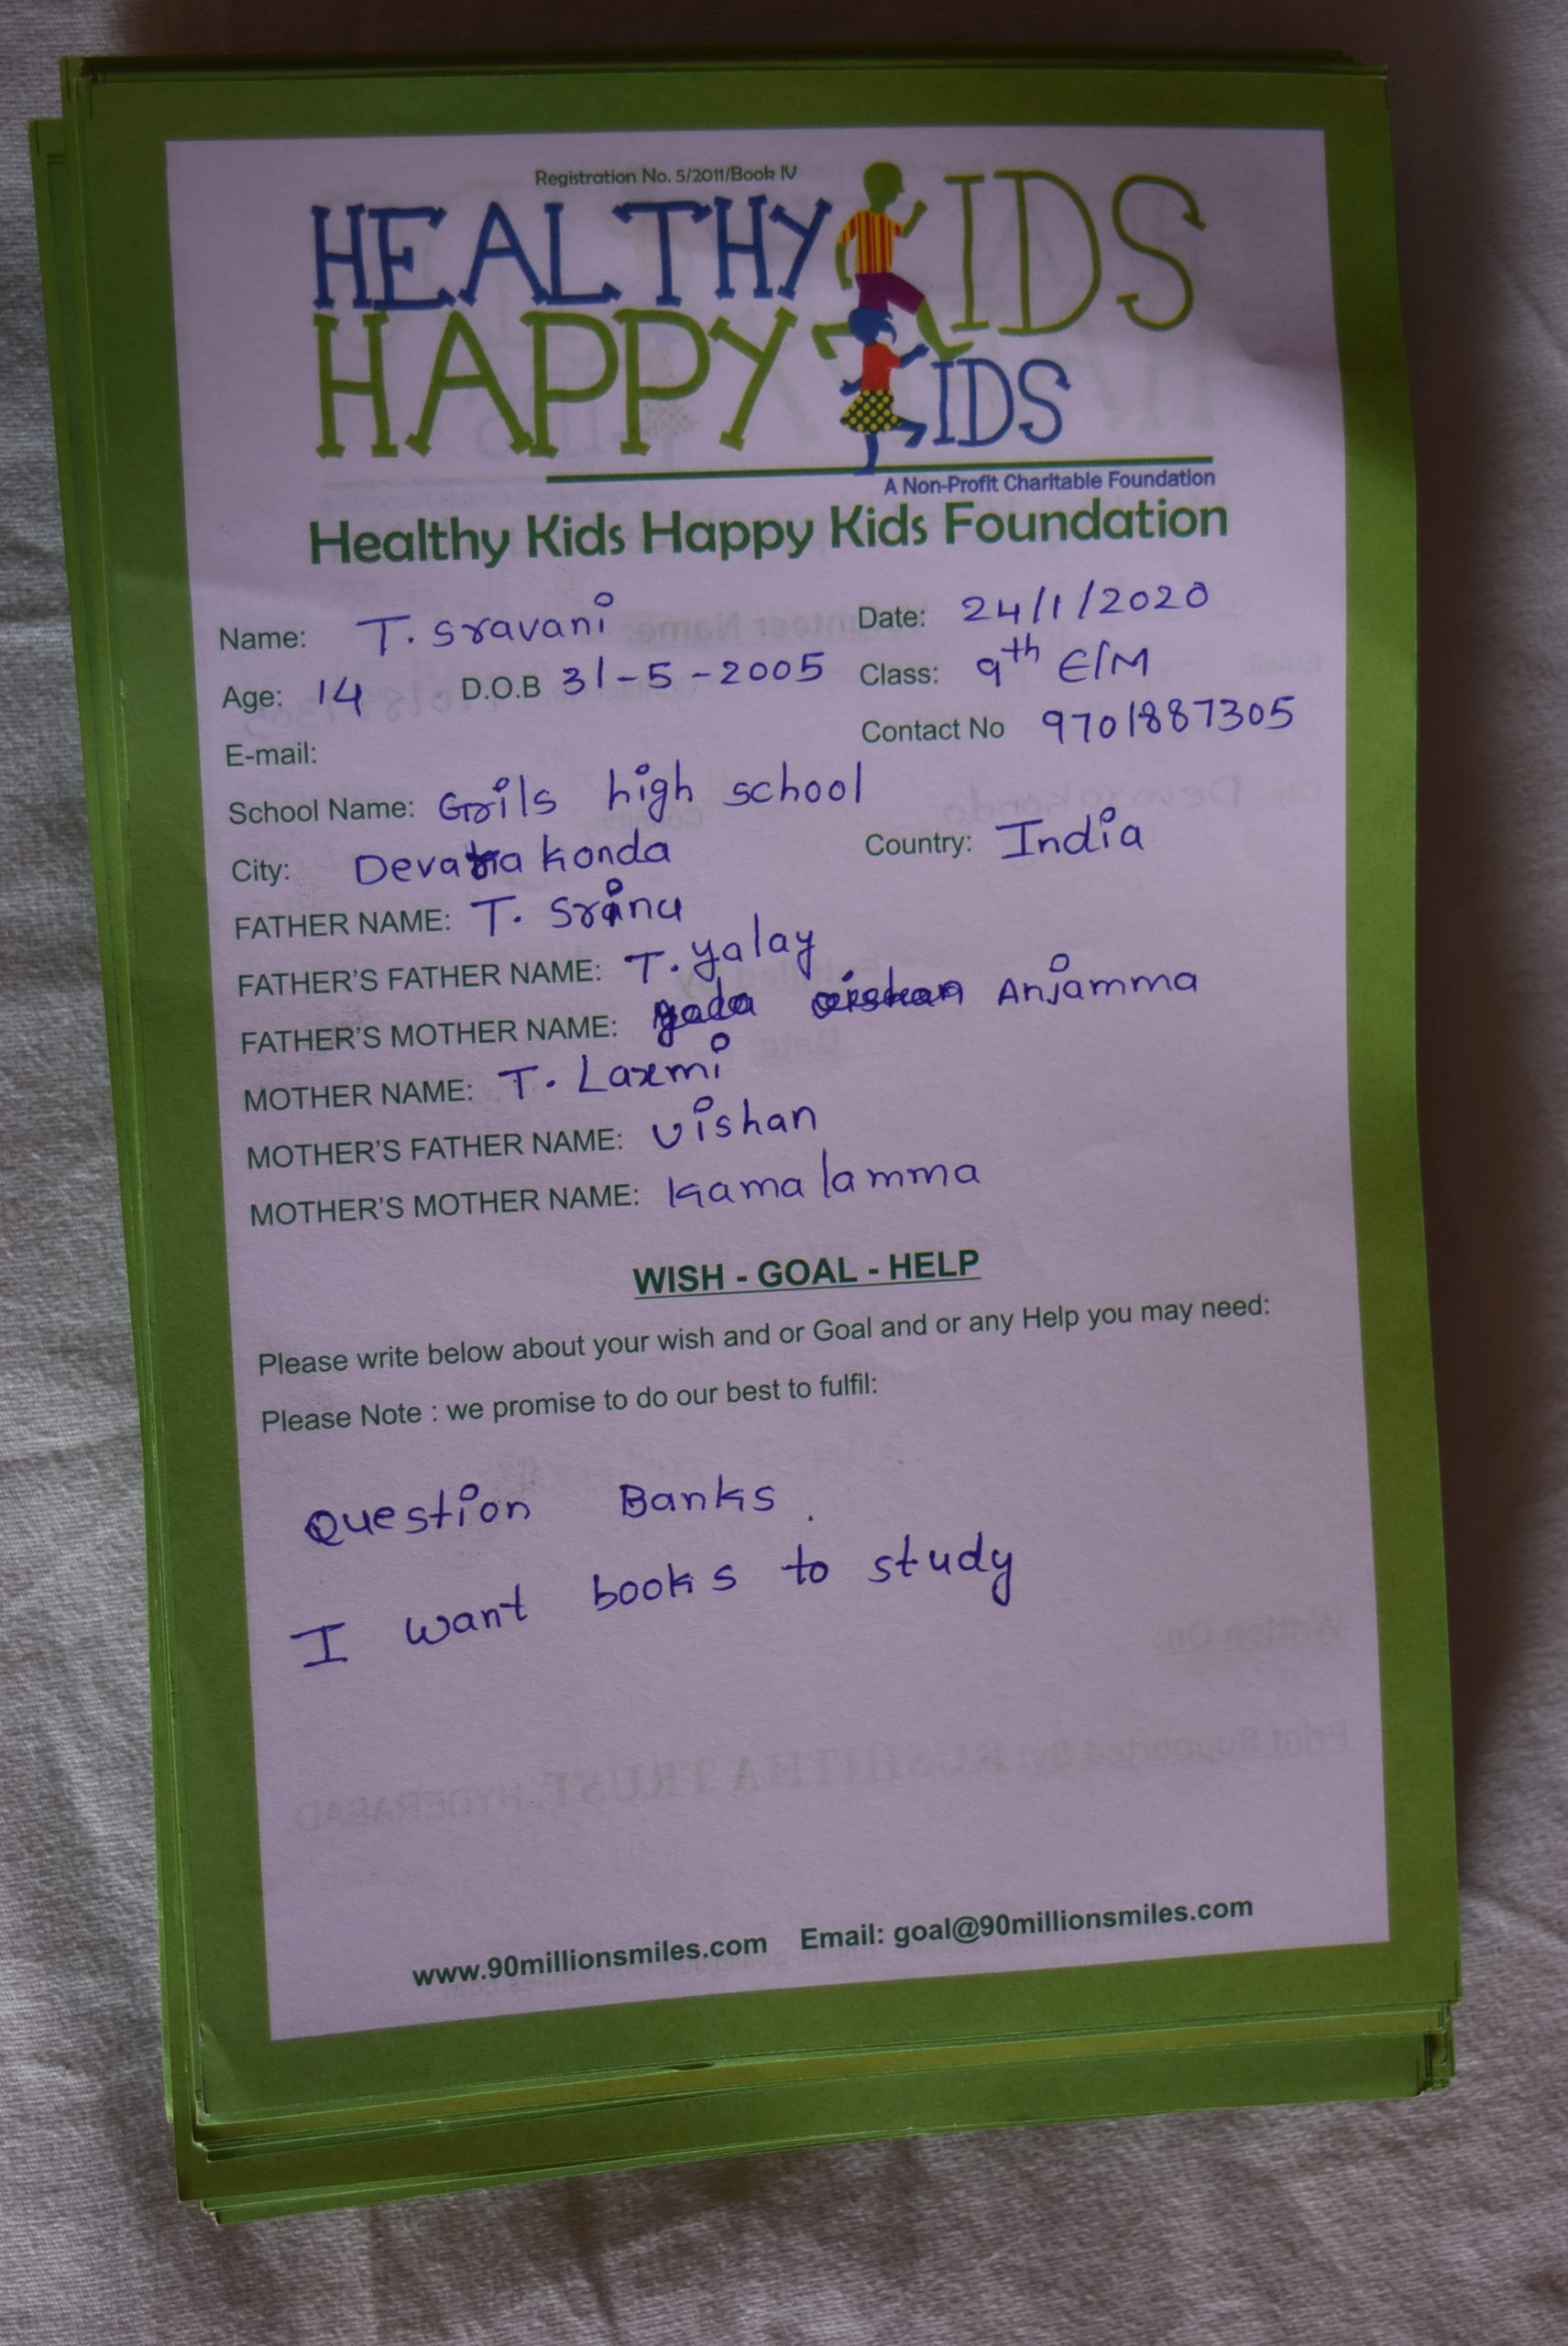 Registration No. 5/2011/Book IV
HEALTHY KIDS
HAPPY KIDS
A Non-Profit Charitable Foundation
Healthy Kids Happy Kids Foundation
Name: T. Sravani Date: 24/1/2020
Age: 14 D.O.B 31-5-2005 Class: 9th E/M
E-mail: Contact No 9701887305
School Name: Grils high school
City: Devarakonda Country: India
FATHER NAME: T. Srinu
FATHER'S FATHER NAME: T. yalay
FATHER'S MOTHER NAME: Anjamma
MOTHER NAME: T. Laxmi
MOTHER'S FATHER NAME: Vishan
MOTHER'S MOTHER NAME: Kamalamma
WISH - GOAL - HELP
Please write below about your wish and or Goal and or any Help you may need:
Please Note : we promise to do our best to fulfil:
Question Banks.
I want books to study
www.90millionsmiles.com Email: goal@90millionsmiles.com